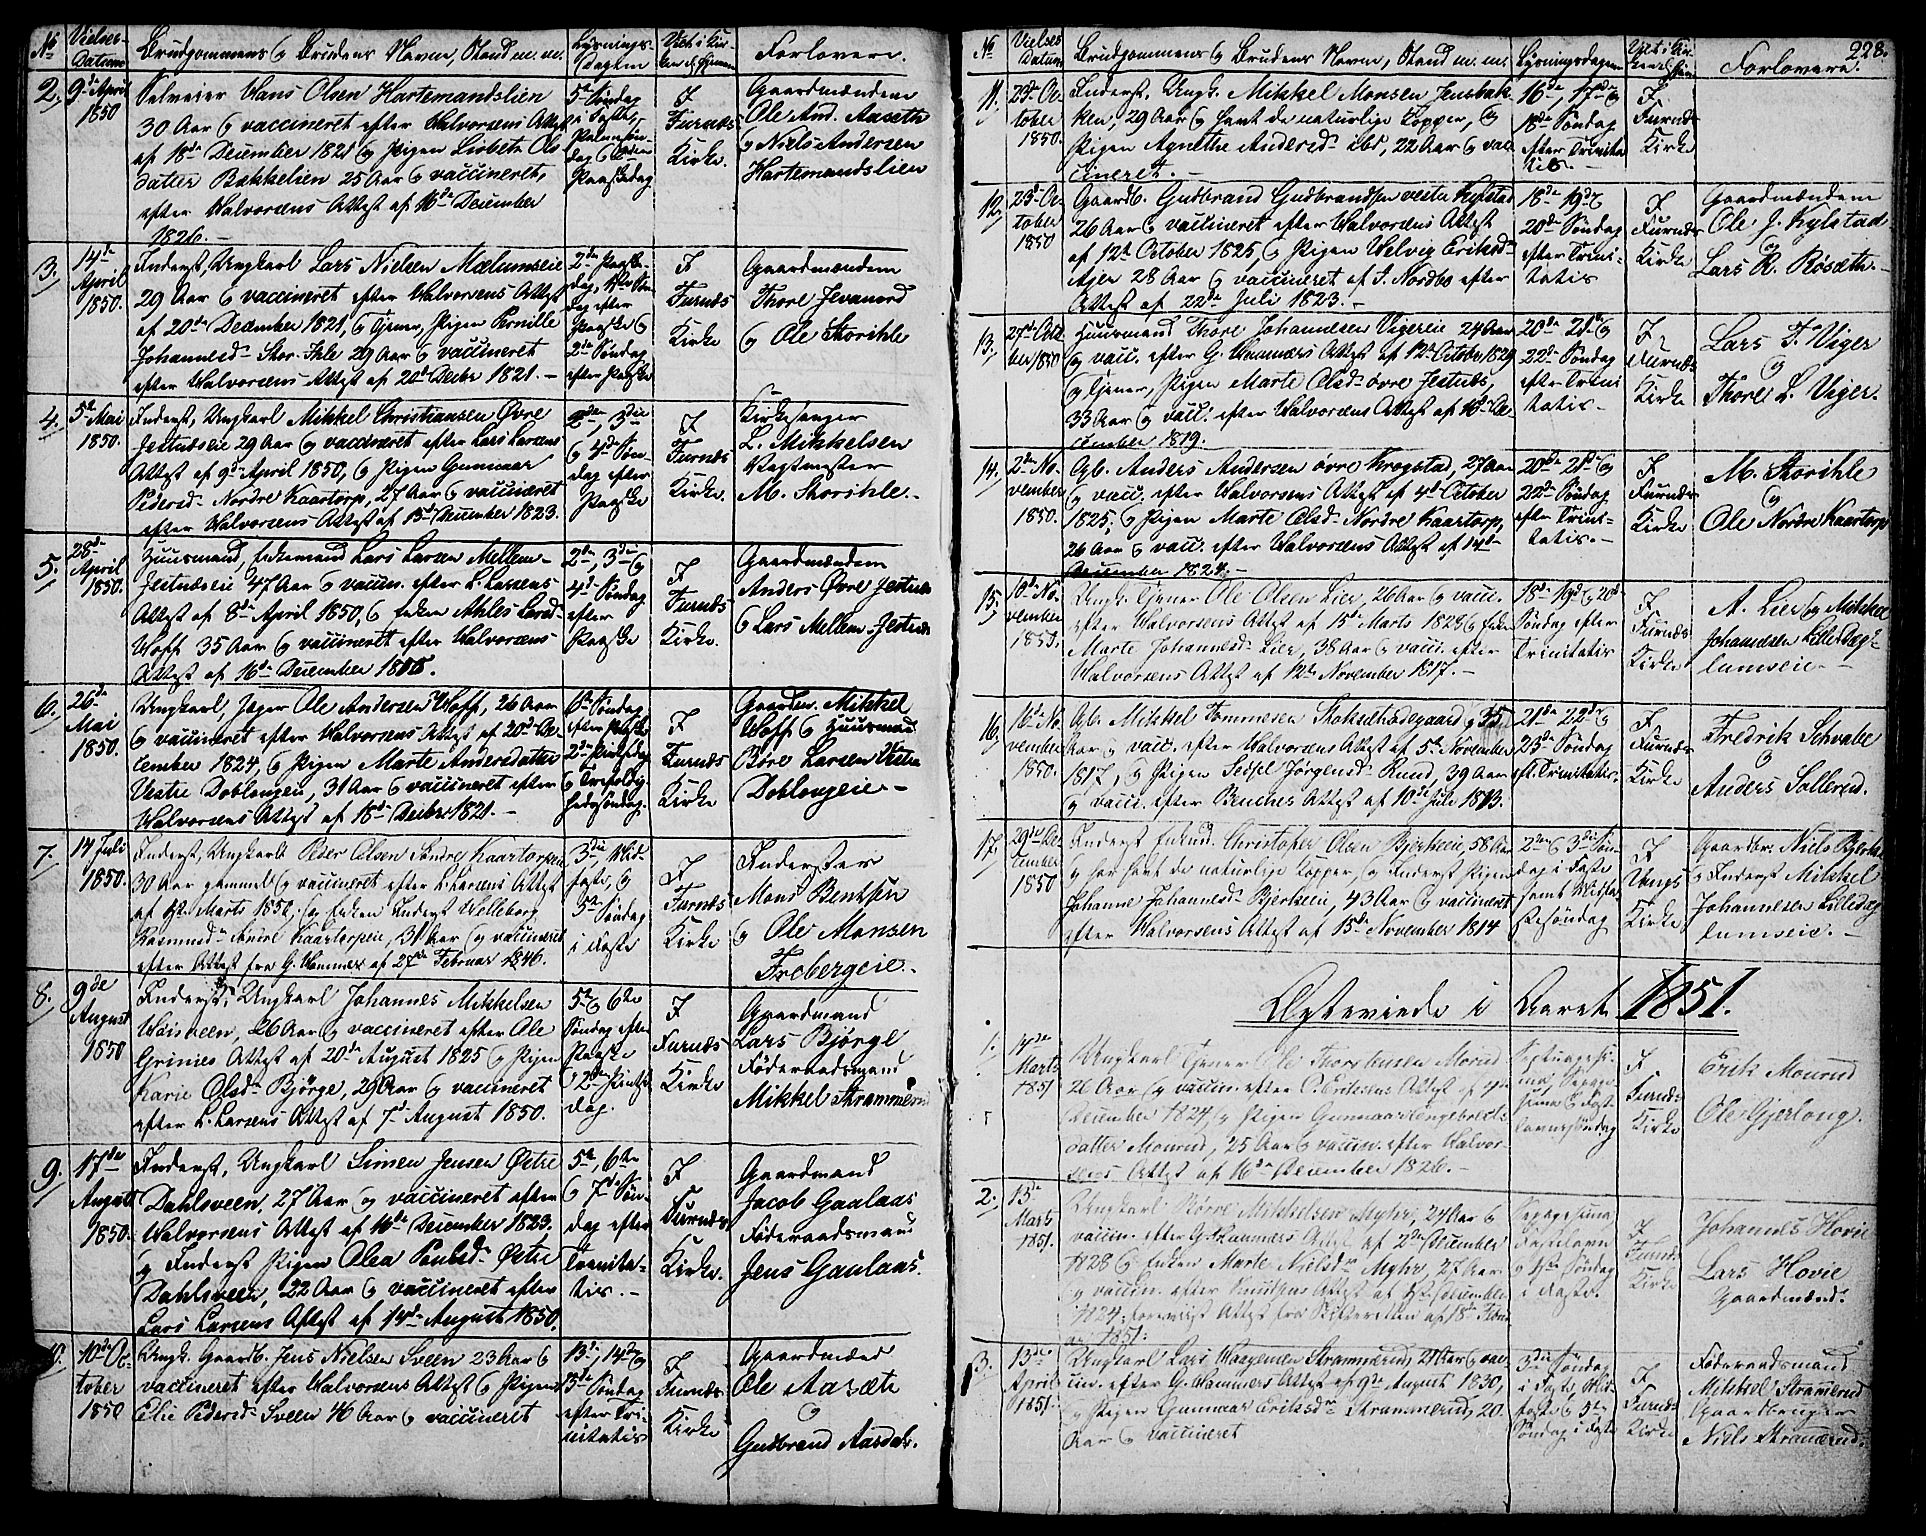 No Vielses- Datum Brudgommens og Brudens Navn, Stand m. m. Lysnings-Dagene Viet i Kirken el. Hjemme Forlovere.
2. 9de April 1850
Selveier Hans Olsen Hartemandslien
30 Aar og vaccineret efter Halvorsens Attest
af 18de December 1821 og Pigen Lisbeth Ols-
datter Bakkelien 25 Aar og vaccineret,
efter Halvorsens Attest af 16de December
1826. –
5te Søndag
i Faste,
Palmesøn-
dag og
Paaskedag
I
Furnæs
Kirke.
Gaardmændene
Ole And. Aaseth
og Niels Andersen
Hartemandslien
3. 14de April 1850.
Inderst, Ungkarl Lars Nielsen Mælumseie
29 Aar og vaccineret efter Halvorsens Attest
af 20de December 1821, og Tjener, Pigen Pernille
Johannesd. Stor-Ihle 29 Aar og vaccineret
efter Halvorsens Attest af 20de Decbr 1821. –
2den Paaske-
dag, 1ste Søn-
dag efter
Paaske og
2den Søndag
efter Paaske
I
Furnæs
Kirke.
Gaardmændene
Thore Jevanord
og Ole Storihle
4. 5te Mai 1850.
Inderst, Ungkarl Mikkel Christiansen Øvre
Jestnæseie 29 Aar og vaccineret efter Lars Larsens
Attest af 9de April 1850, og Pigen Gunnaar
Pedersd. Nordre Kaartorp, 27 Aar og vaccineret
efter Halvorsens Attest af 15de December 1823.
2den, 3die
og 4de Søn-
dag efter
Paaske
I
Furnæs
Kirke.
Kirkesanger
L. Mikkelsen
Vagtmester
M. Storihle. –
5. 28de April 1850.
Huusmand, Enkemand Lars Larsen Mellem-
Jestnæseie 47 Aar og vaccin. efter L. Larsens
Attest af 8de April 1850, og Enken Ahles Larsd.
Hoff 35 Aar og vaccineret efter Halvorsens
Attest af 16de December 1816.
2den, 3die og
4de Søndag
efter
Paaske
I
Furnæs
Kirke.
Gaardmændene
Anders Øvre Jestnæs
og Lars Mellem Jestnæs
6. 26de Mai 1850.
Ungkarl, Jæger Ole Andersen Hoff, 26 Aar
og vaccineret efter Halvorsens Attest af 20de De-
cember 1824, og Pigen Marte Andersdatter
Vestre Doblougen, 31 Aar og vaccineret efter
Halvorsens Attest af 18de Decbr 1821. –
6te Søndag
efter Paaske
2den Pintsedag
og Trefoldig-
hedssøndag.
I
Furnæs
Kirke.
Gaardm. Mikkel
Hoff og Huusmand
Børe Larsen Vestre
Doblougeie –
7. 14 Juli 1850.
Inderst, Ungkarl Peder Olsen Søndre Kaartorpeie
30 Aar gammel og vaccineret efter L. Larsens Attest
af 1ste Marts 1850, og Enken Inderst Helleborg
Rasmusd. Søndre Kaartorpeie, 31 Aar og vaccineret
efter Attest fra G. Hammer af 27de Februar 1846.
3die, Mid-
faste, og
5te Søndag
i Faste
I
Furnæs
Kirke
Inderster
Mons Bentsen
og Ole Monsen
Frebergeie. –
8. 9de August 1850
Inderst, Ungkarl Johannes Mikkelsen
Hoisveen, 26 Aar og vaccineret efter Ole
Grinies Attest af 20de August 1825 og Pigen
Karie Olsd. Bjørge, 29 Aar og vaccineret
efter L. Larsens Attest af 7de August 1850.
5te og 6te
Søndag efter
Paaske
og 2den Pintse-
dag.
I
Furnæs
Kirke
Gaardmand
Lars Bjørge
Føderaadsmand
Mikkel Strammerud
9. 17de August 1850.
Inderst, Ungkarl Simen Jensen Østre
Dahlsveen, 27 Aar og vaccineret efter
Halvorsens Attest af 16de December 1823.
og Inderst Pigen Olea Poulsd. Østre
Dahlsveen, 22 Aar og vaccineret efter
Lars Larsens Attest af 14de August 1850.
5te, 6te
og 7de Søn-
dag efter
Trinita-
tis. –
I
Furnæs
Kirke.
Gaardmand
Jacob Gaalaas
Føderaadsmand
Jens Gaalaas.
10. 10de Oc- tober 1850
Ungk. Gaardb. Jens Nielsen Sveen 23 Aar og
vaccineret efter Halvorsens Attest og Pigen
Elie Pedersd. Sveen 46 Aar og vaccineret
13de, 14de og
15de Søndag
efter Tri-
nitatis
I
Furnæs
Kirke
Gaardmænd
Ole Aaseth
og
Gudbrand Aasdal.
228.
No Vielses Datum Brudgommens og Brudens Navn, Stand m. m. Lysningsdagene Viet i Kirken el. Hjemme Forlovere.
11. 23de Oc- tober 1850.
Inderst, Ungk. Mikkel Monsen Jensbak-
ken, 29 Aar og havt de naturlige Kopper, og
Pigen Agnethe Andersd. ibd, 22 Aar og vac-
cineret. –
16de, 17de og
18de Søndag
efter Trinita-
tis. –
I
Furnæs
Kirke
12. 23de Oc- tober 1850
Gaardb. Gudbrand Gudbrandsen vestre Kylstad
26 Aar og vaccineret efter Halvorsens Attest
af 12te October 1825, og Pigen Helvig Eriksd.
Ajer 28 Aar og vaccineret af I. Nordbo efter
Attest af 22de Juli 1823. –
18de 19de og
20de Søndag
efter Trini-
tatis
I
Furnæs
Kirke
Gaardmændene
Ole J. Kylstad
og
Lars K. Røsæth. –
13. 27de Octo- ber 1850
Huusmand Thore Johannesen Vigereie 24 Aar
og vacc. efter G. Hammers Attest af 12te October 1829
og Tjener, Pigen Marte Olsd. øvre Jestnæs,
33 Aar og vacc. efter Halvorsens Attest af 16de De-
cember 1819.
20de 21de og
22de Søndag
efter Trini-
tatis –
I
Furnæs
Kirke
Lars T. Viger
og
Thore L. Viger.
14. 2den No- vember 1850.
Gb. Anders Andersen øvre Krogstad, 27 Aar
og vacc. efter Halvorsens Attest af 4de October
1825, og Pigen Marte Olsd. Nordre Kaartorp,
26 Aar og vacc. efter Halvorsens Attest af 14de
December 1824. –
20de 21de og
22de Søndag
efter Trini-
tatis. –
I
Furnæs
Kirke
M. Storihle
og
Ole Nordre Kaartorp
15. 10de No- vember 1850.
Ungk. Tjener Ole Olsen Lier, 26 Aar og vacc.
efter Halvorsens Attest af 15de Marts 1828 og Enken
Marte Johannesd. Lier, 38 Aar og vacc. efter
Halvorsens Attest af 12te November 1817. –
18de 19de og 20de
Søndag efter
Trinitatis
I
Furnæs
Kirke
A. Lier og Mikkel
Johannesen Lille Dag-
lumseie –
16. 16de No- vember 1850.
Gb. Mikkel Tommesen Stokselhodegaard, 35
Aar og vacc. efter Halvorsens Attest af 5te November
1817, og Pigen Sedsel Jørgensd. Ruud, 39 Aar
og vacc. efter Benches Attest af 10de Juli 1813.
21de 22de og
23de Søndag
eft. Trinitatis.
I
Furnæs
Kirke
Fredrik Schvabe
og
Anders Sollerud.
17. 29de De- cember 1850
Inderst Enkmd. Christopher Olsen Bjerkeeie, 58 Aar
og har havt de naturlige Kopper, og Inderst Pigen
Johanne Johannesd. Bjerkeeie, 43 Aar og vaccineret
efter Halvorsens Attest af 15de November 1814
2den og 3die Søn-
dag i Faste
samt Midfa-
stesøndag
I
Vangs
Kirke
Gaardbr. Niels Bjerke
og Inderst Mikkel
Johannesen Lilledag-
lumseie. –
Ægteviede i Aaret 1851.
1. 4de Marts 1851
Ungkarl Tjener Ole Thorstensen Morud
26 Aar og vaccin. efter O. Eriksens Attest af 4de
December 1824, og Pigen Gunnaar Engebretsd-
datter Mourud, 25 Aar og vaccin. efter Halvor-
sens Attest af 16de December 1826. –
Septuagesi-
ma, Sexage-
sima og Fast-
lavnssøndag
I
Furnæs
Kirke
Erik Mourud
Ole Gjerlong.
2. 15de Marts 1851.
Ungkarl Børre Mikkelsen Myhr, 24 Aar og
vaccin. efter G. Hammers Attest af 2den December
1828 og Enken Marte Nielsd. Myhr, 27 Aar
og vaccin. efter Knudsens Attest af 1ste December
1824, forevist Attest fra Skifteretten af 18de Febru-
ar 1851.
Sexagesima,
Fastelavn
og 1ste Søndag
i Faste.
I
Furnæs
Kirke
Johannes Hovie
Lars Hovie
Gaardmænd.
3. 13de April 1851.
Ungkarl Lars Haagensen Strammerud, 21 Aar og vac-
cin. efter G. Hammers Attest af 9de August 1830,
og Pigen Gunnaar Eriksd. Strammerud, 20
Aar og vaccineret
3die Søndag
i Faste, Mid-
faste og 5te
Søndag i Faste
I
Furnæs
Kirke
Føderaadsmand
Mikkel Strammerud
Gaardbruger
Niels Strammerud.